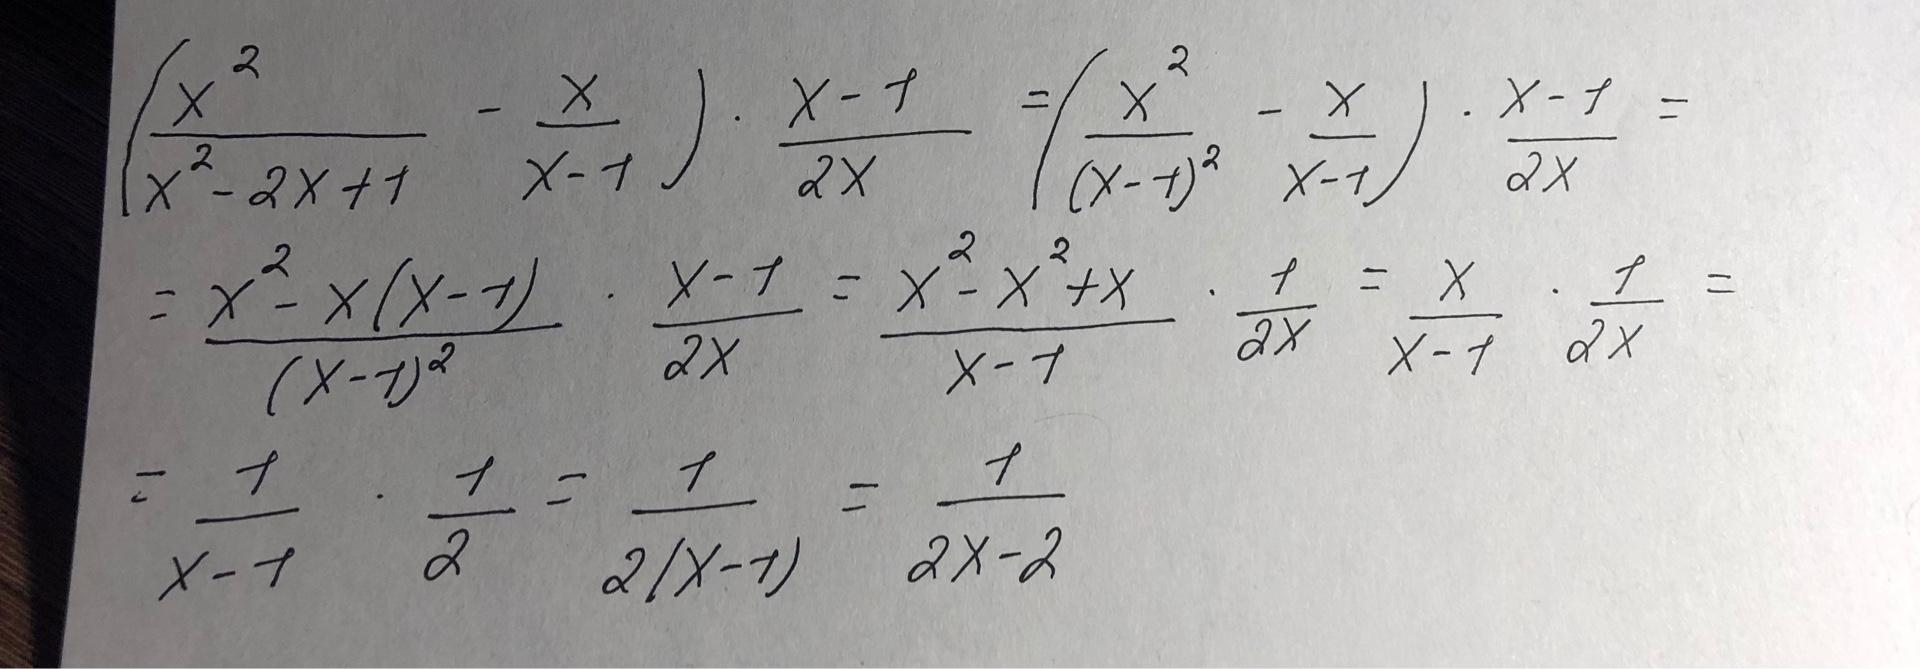 (x²/(x²-2x+1) - x/(x-1)) · (x-1)/(2x) = (x²/(x-1)² - x/(x-1)) · (x-1)/(2x) =
= (x²-x(x-1))/(x-1)² · (x-1)/(2x) = (x²-x²+x)/(x-1) · 1/(2x) = x/(x-1) · 1/(2x) =
= 1/(x-1) · 1/2 = 1/(2(x-1)) = 1/(2x-2)